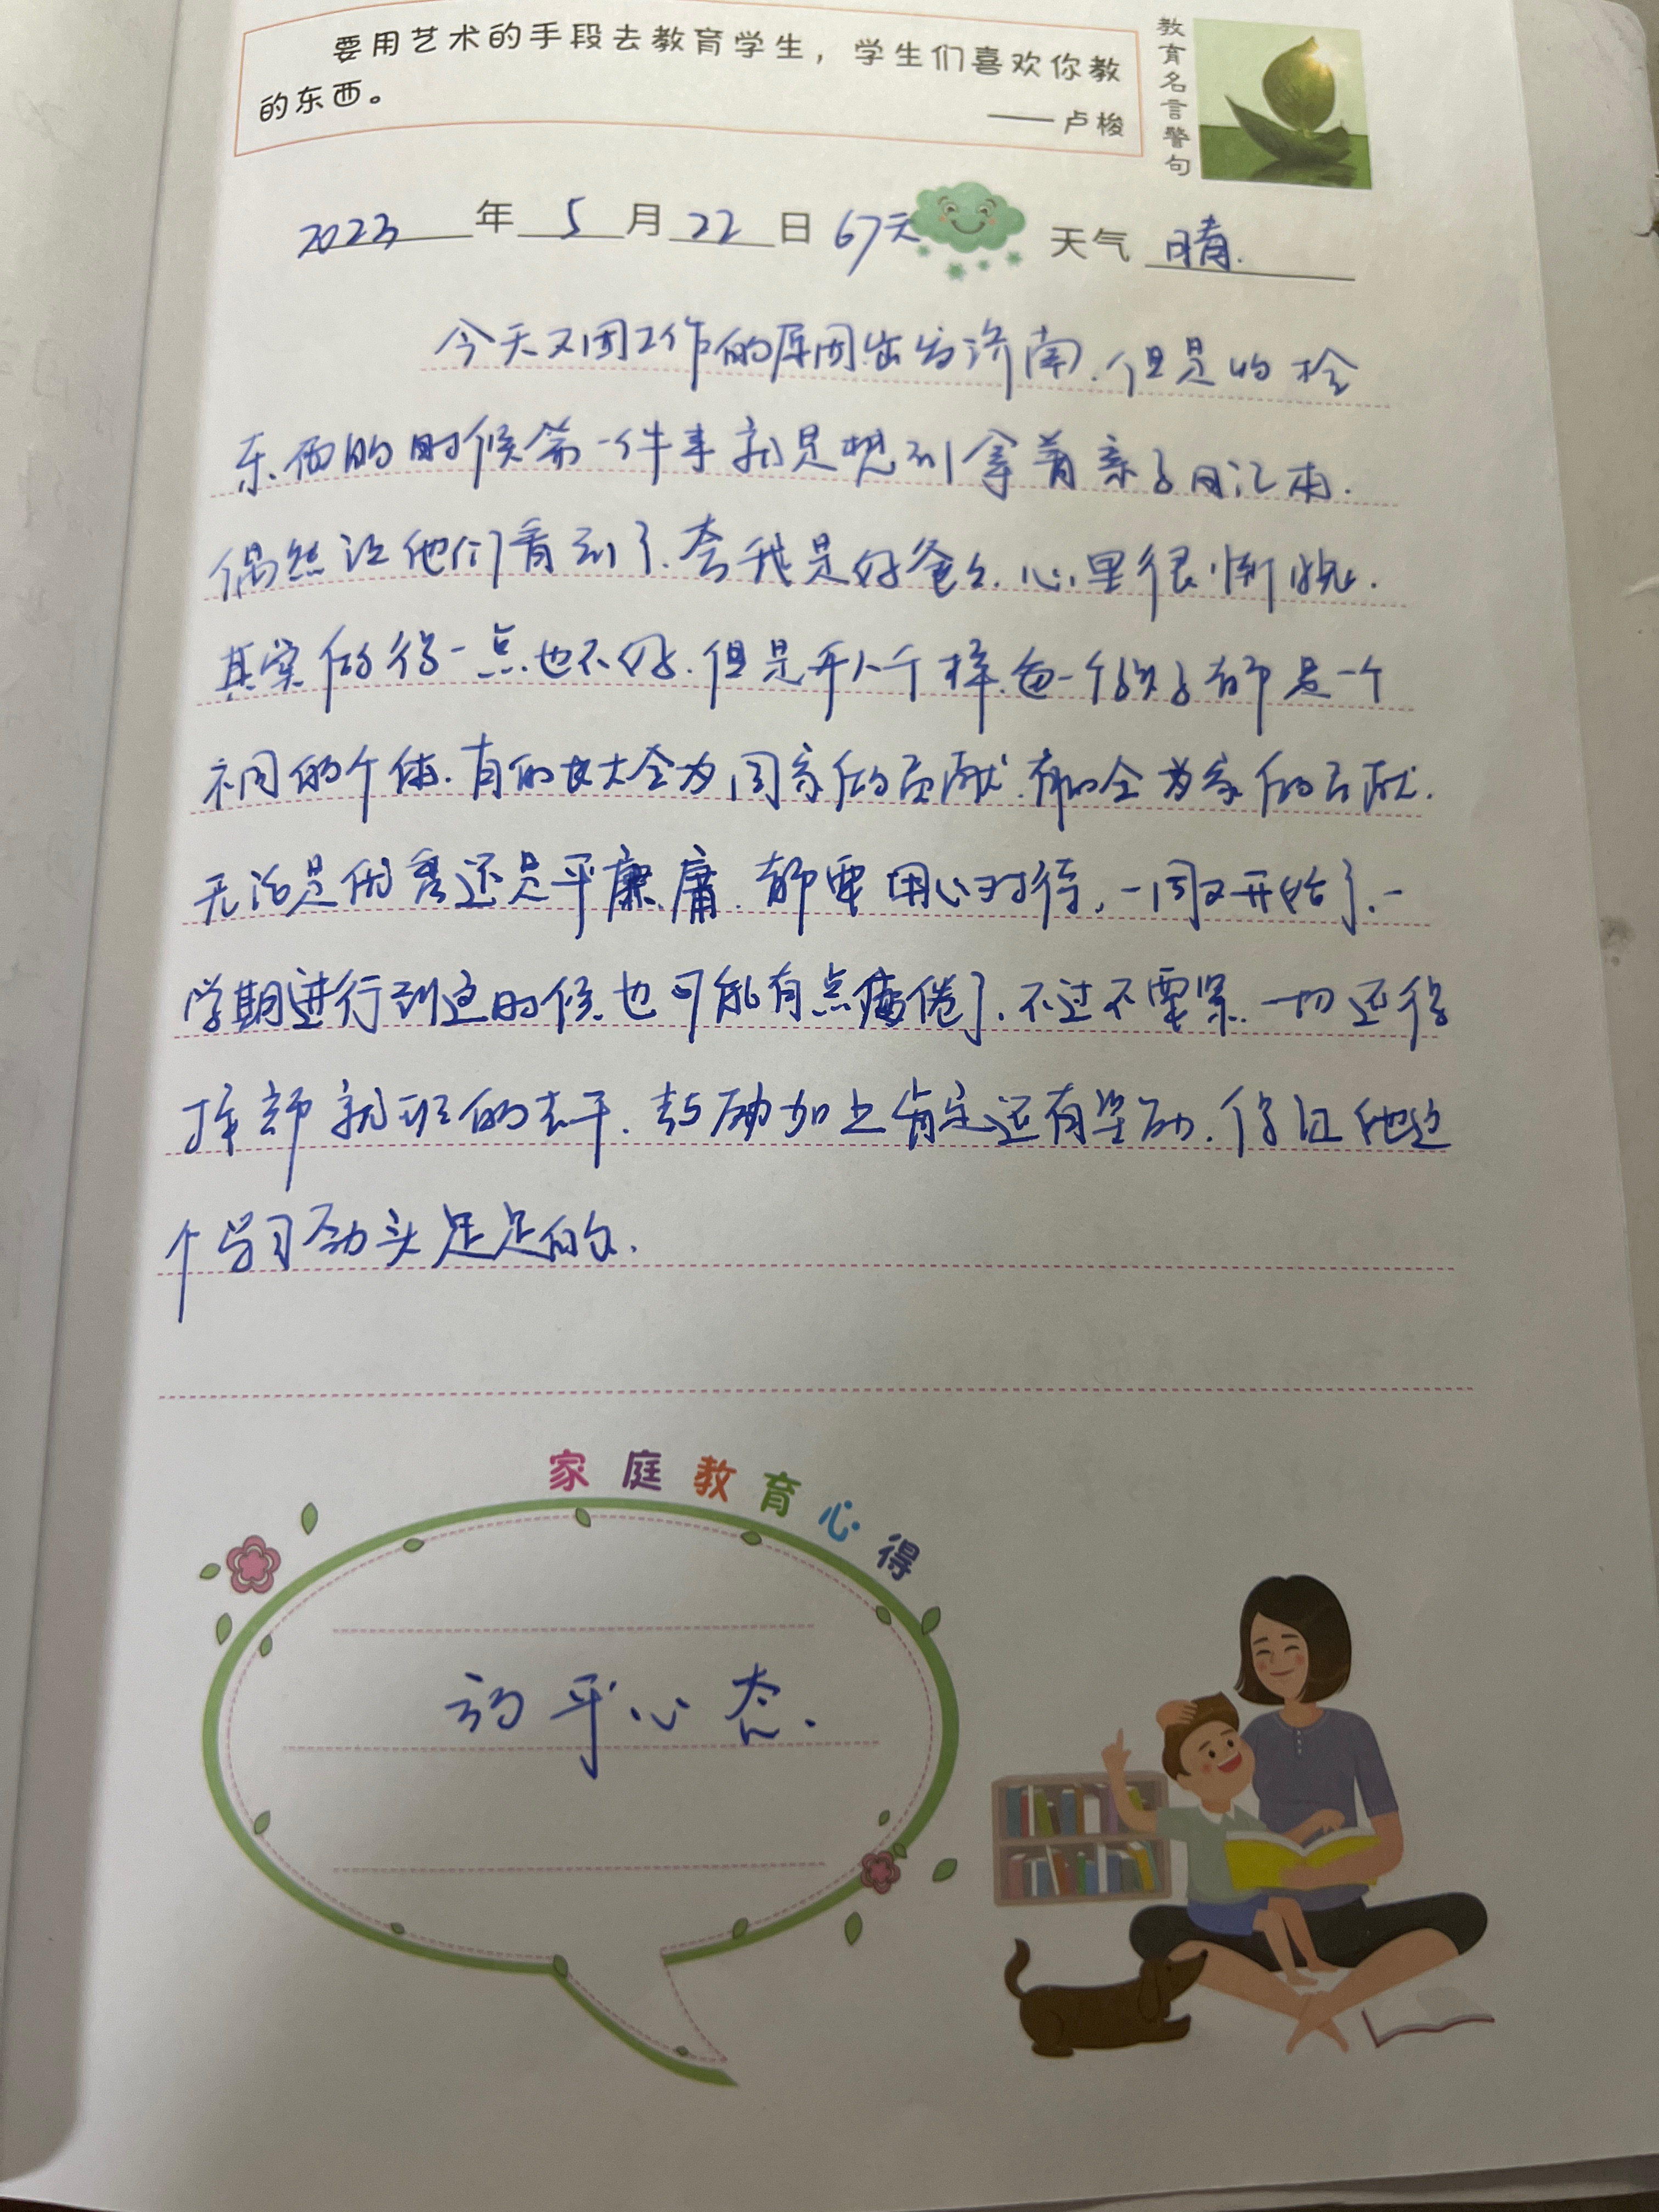 要用艺术的手段去教育学生，学生们喜欢你教
的东西。
——卢梭
教育名言警句
2023年5月22日 67天 天气 晴.
今天又因工作的原因出发济南.但是收拾
东西的时候第一件事就是想到拿着亲子日记本.
偶然让他们看到了.夸我是好爸爸.心里很惭愧.
其实做得一点也不好.但是千人千样.每一个孩子都是一个
不同的个体.有的长大会为国家做贡献.有的会为家做贡献.
无论是优秀还是平庸.都要用心对待,一周又开始了.一
学期进行到这时候也可能有点疲倦了.不过不要紧.一切还得
按部就班的去干.鼓励加上肯定还有奖励.保证他这
个学习劲头足足的.
家庭教育心得
放平心态.